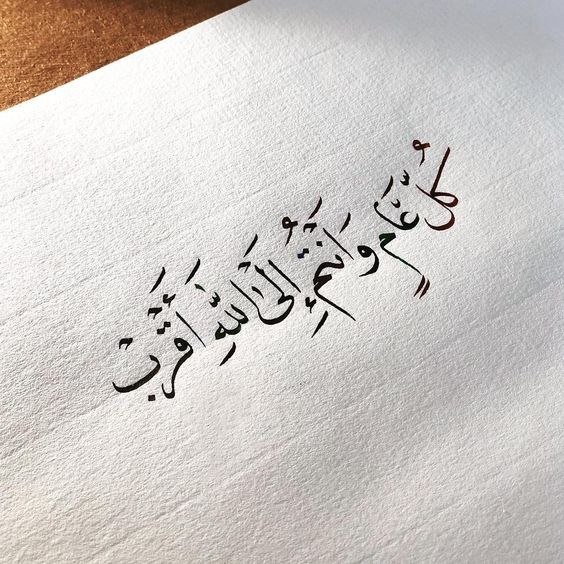 كُلُّ عَامٍ وَأَنْتُمْ إِلَى اللَّهِ أَقْرَبْ